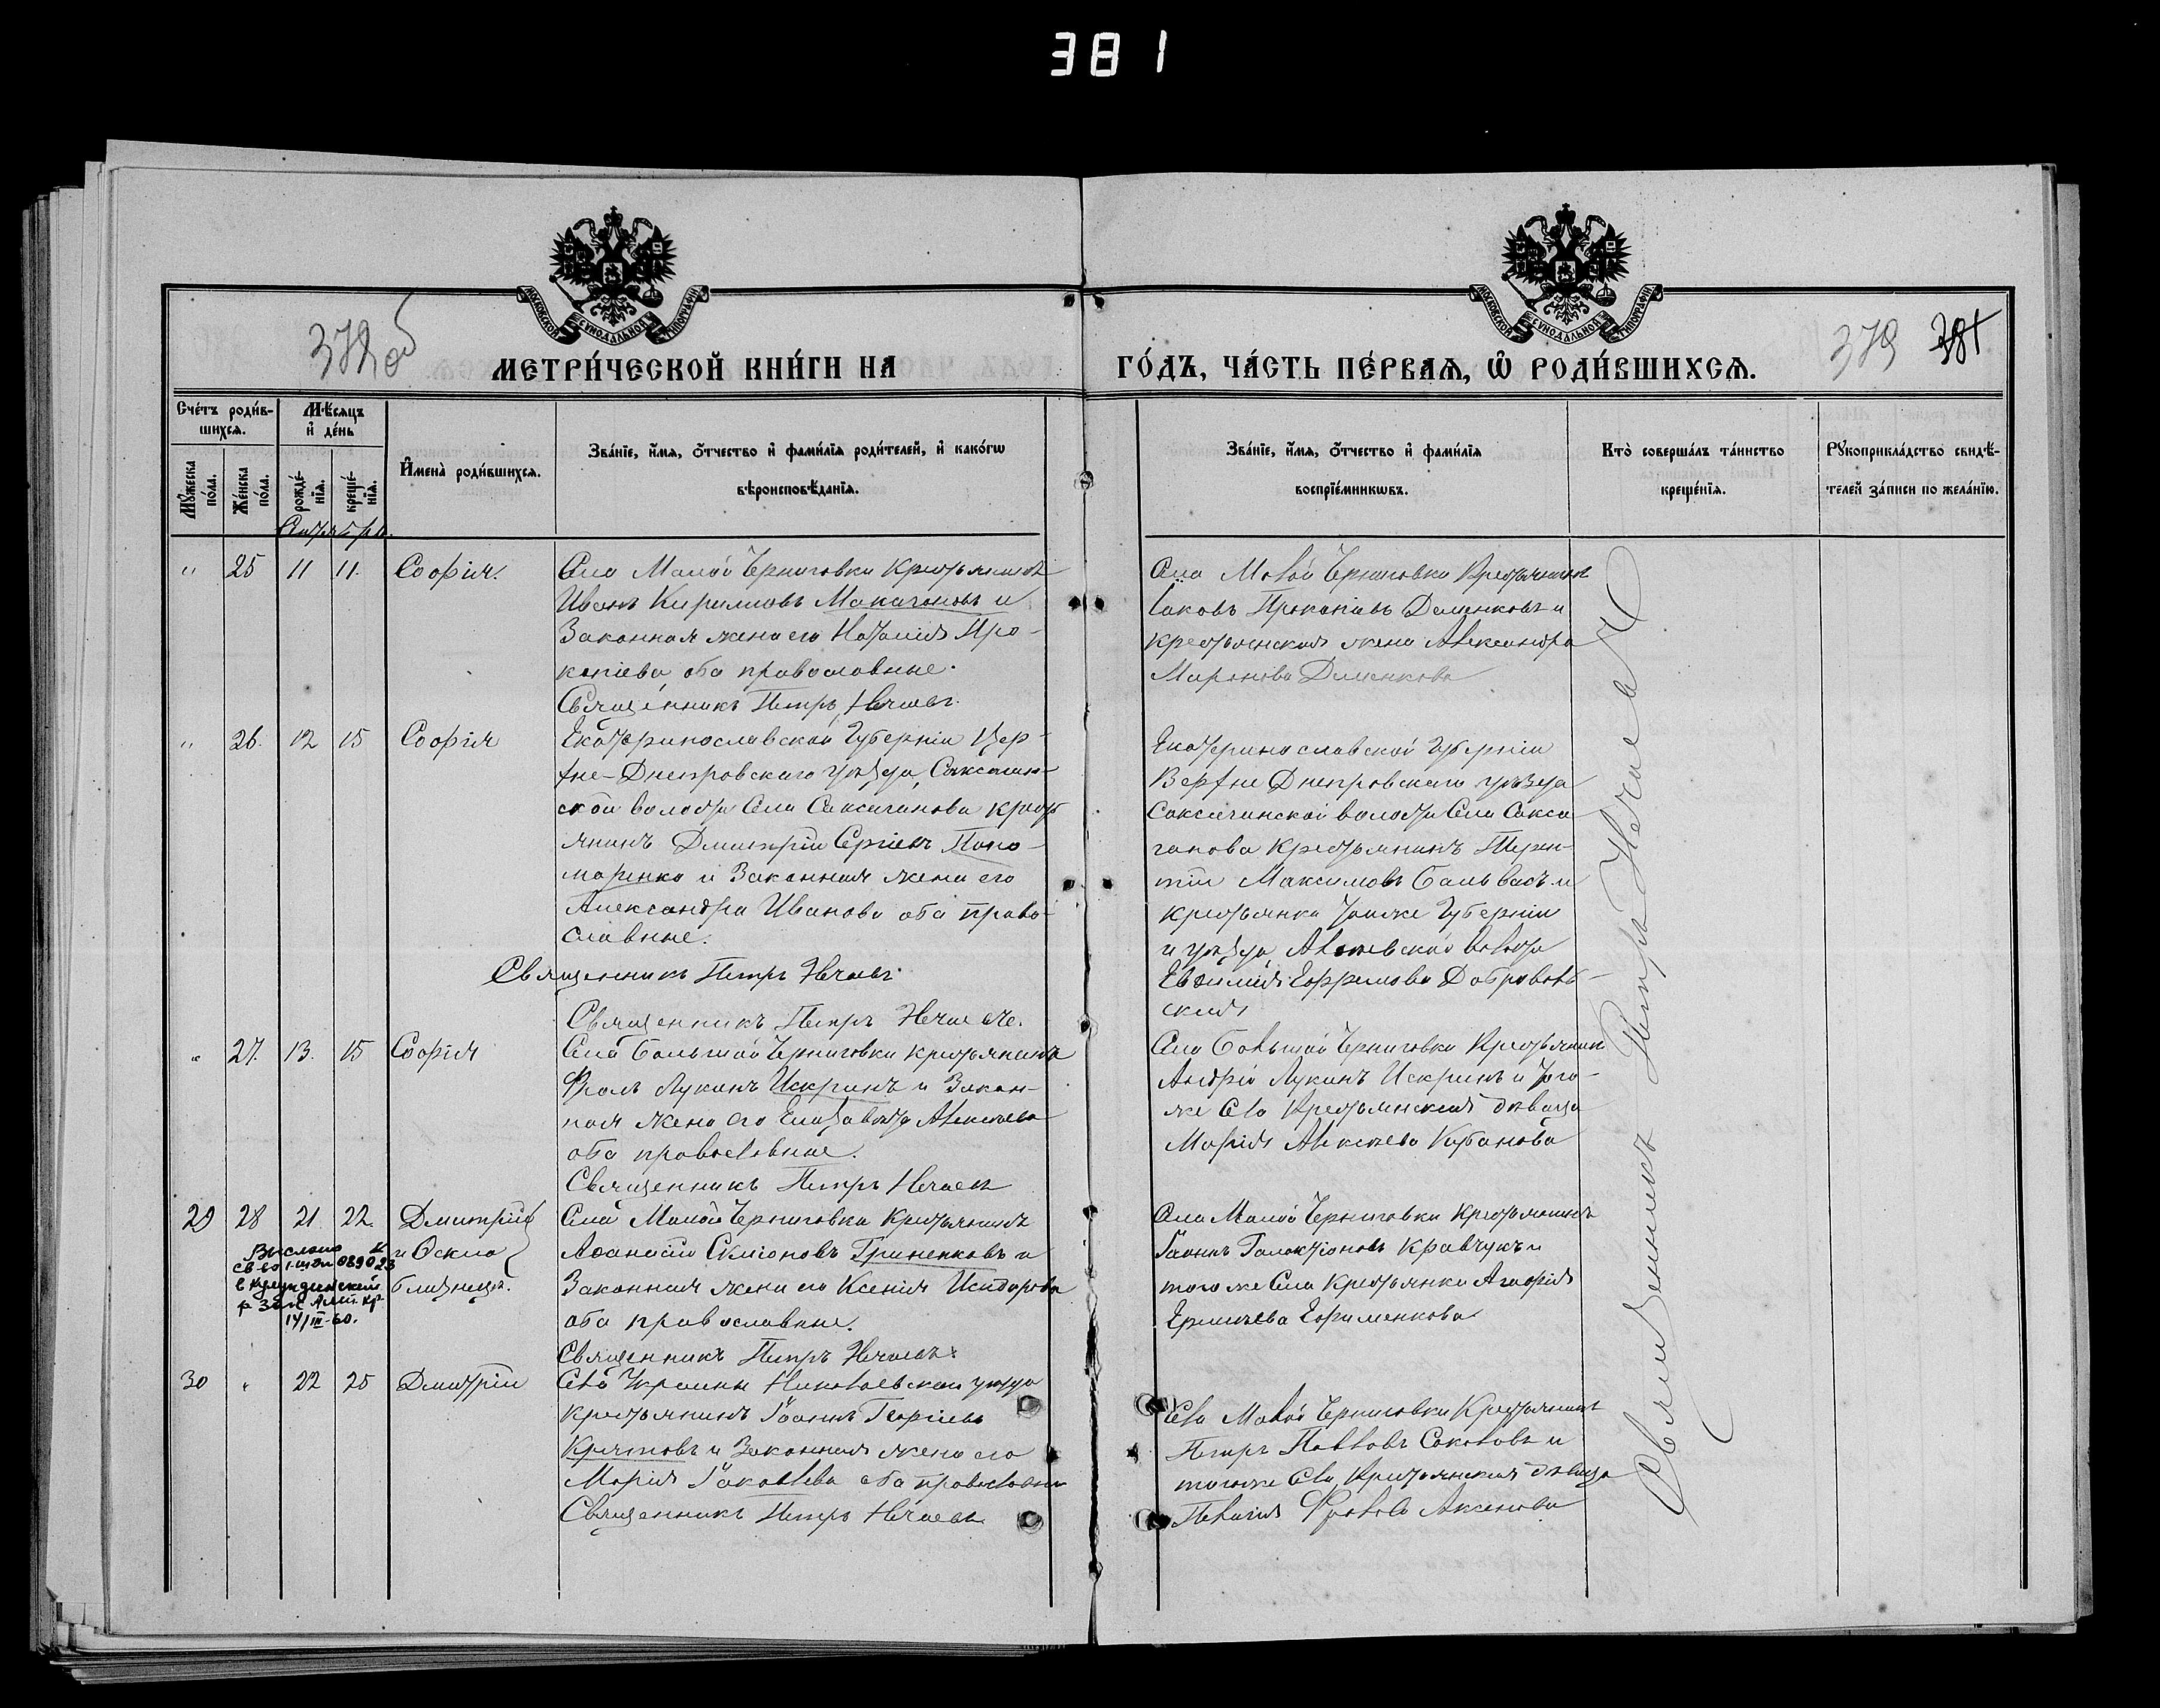 381
МОСКОВСКОЙ СѴНОДАЛЬНОЙ ТИПОГРАФІИ
МОСКОВСКОЙ СѴНОДАЛЬНОЙ ТИПОГРАФІИ
378 об
МЕТРИ́ЧЕСКОЙ КНИ́ГИ НА
ГО́ДЪ, ЧА́СТЬ ПЕ́РВАЯ, Ѽ РОДИ́ВШИХСЯ.
379 381
Сче́тъ роди́в-
шихся.
Мѣ́сяцъ
и҆ де́нь
Мꙋ́жеска по́ла.
Же́нска по́ла.
рожде́-нїя.
креще́-нїя.
И҆мена̀ роди́вшихся.
Зва́нїе, и҆́мя, ѻ҆́тчество и҆ фами́лїя роди́телей, и҆ како́гѡ
вѣроисповѣ́данїя.
Зва́нїе, и҆́мя, ѻ҆́тчество и҆ фами́лїя
воспрїе́мникѡвъ.
Кто̀ соверша́лъ та́инство
креще́нїя.
Рꙋкоприкла́дство свидѣ́-
телей за́писи по жела́нїю.
Сентября
" 25 11 11. Софія.
Села Малой Черниговки крестьянинъ
Иванъ Кириловъ Макагоновъ и
Законная жена его Наталія Про-
копіева оба православные.
Священникъ Петръ Нечаевъ.
Села Малой Черниговки Крестьянинъ
Іаковъ Прокопіевъ Деменковъ и
крестьянская жена Александра
Миронова Деменкова
" 26. 12 15 Софія
Екатеринославской Губерніи Вер-
хне-Днепровскаго уѣзда, Саксаган-
ской волости Села Саксаганова крест
янинъ Дмитрій Сергіевъ Поно-
маренко и Законная жена его
Александра Иванова оба право-
славные.
Священникъ Петръ Нечаевъ.
Священникъ Петръ Нечаевъ.
Екатеринославской Губерніи
Верхне Днепровскаго уѣзда
Саксаганской волости Села Сакса-
ганова Крестьянинъ Терен-
тій Максимовъ Бальвасъ и
крестьянка тойже Губерніи
и уѣзда, волости
Евфимія Ефремова Добровол-
ская
" 27. 13. 15 Софія
Села Большой Черниговки крестьянинъ
Фролъ Лукинъ Искринъ и Закон-
ная жена его Елизавета Алексѣева
оба православные.
Священникъ Петръ Нечаевъ
Села Большой Черниговки Крестьянинъ
Андрей Лукинъ Искринъ и того-
же Села Крестьянская дѣвица
Марія Алексѣева Кабанова
29 28 21 22. Дмитрій
и Фекла
близнецы.
Выслано
св-во 089023
14/III-60.
Села Малой Черниговки Крестьянинъ
Аѳанасій Симіоновъ Гриненковъ и
Законная жена его Ксенія Исидорова
оба православные.
Священникъ Петръ Нечаевъ.
Села Малой Черниговки Крестьянинъ
Іоаннъ Галактіоновъ Кравчукъ и
того же Села крестьянка Агафія
Ермилева Ефименкова
30 " 22 25 Дмитрій
Села Украины Николаевскаго уѣзда
крестьянинъ Іоаннъ Георгіевъ
и Законная жена его
Марія Іаковлева оба православны
Священникъ Петръ Нечаевъ
Села Малой Черниговки Крестьянинъ
Петръ Павловъ Соколовъ и
тогоже Села Крестьянская дѣвица
Пелагія Фролова Аксенова
Священникъ Петръ Нечаевъ